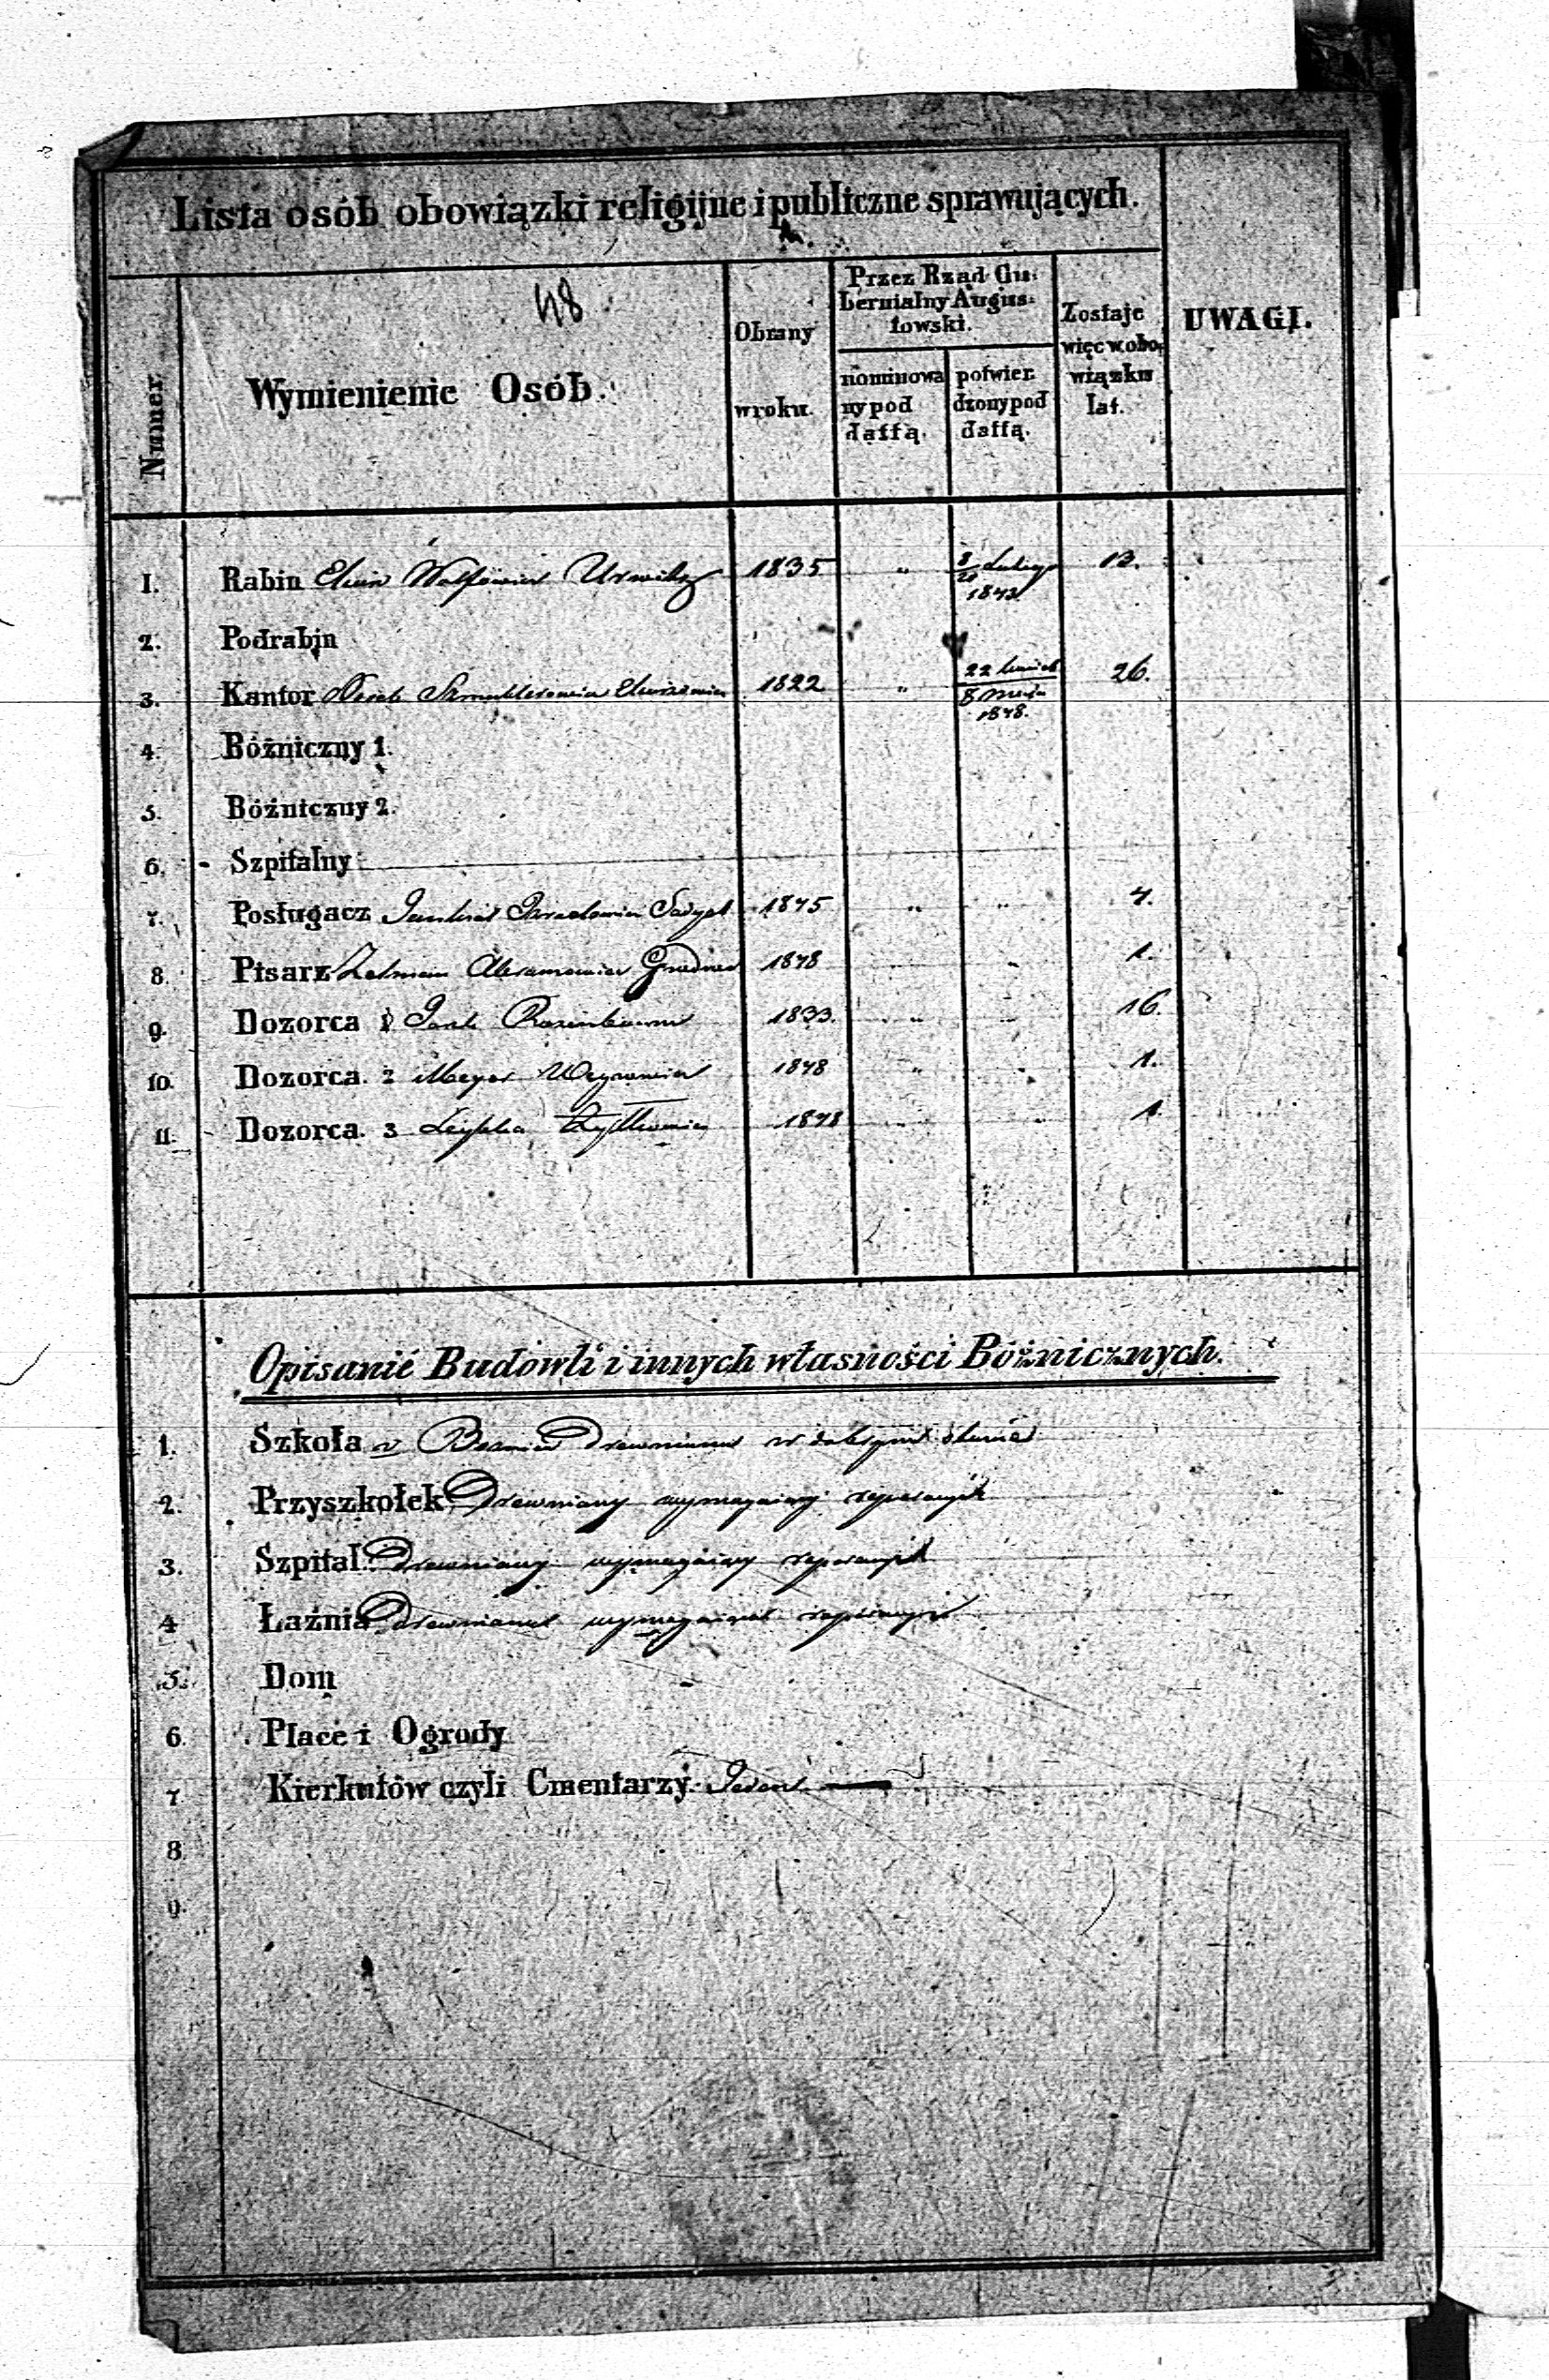 Lista osób obowiązki religijne i publiczne sprawujących.
48
Numer.
Wymienienie Osób.
Obrany
w roku.
Przez Rząd Gu:
bernialny Augus:
towski.
nominowa
ny pod
dattą.
potwier
dzony pod
dattą.
Zostaje
więc w obo,
wiązku
lat.
UWAGI.
1. Rabin 1835 „ 8/20 Lutego 1843 13.
2. Podrabin
3. Kantor 1822 „ 8 Maja 1848. 26.
4. Bóżniczny 1.
5. Bóżniczny 2.
6. Szpitalny
7. Posługacz 1845 „ „ 4.
8. Pisarz Zelman 1848 „ „ 1.
9. Dozorca 1 Rosenbaum 1833. „ „ 16.
10. Dozorca. 2 Meyer 1848 „ „ 1.
11. Dozorca. 3 1848 „ „ 1.
Opisanié Budówli i innych własności Bóżnicznych.
1. Szkoła drewniana w dobrym stanie
2. Przyszkołek Drewniany wymagaiący reperacyi
3. Szpital. Drewniany wymagaiący reperacyi
4 Łaźnia Drewniana wymagaiąca reperacyi
5. Dom
6. Place i Ogrody
7 Kierkutów czyli Cmentarzy. Jeden
8.
9.